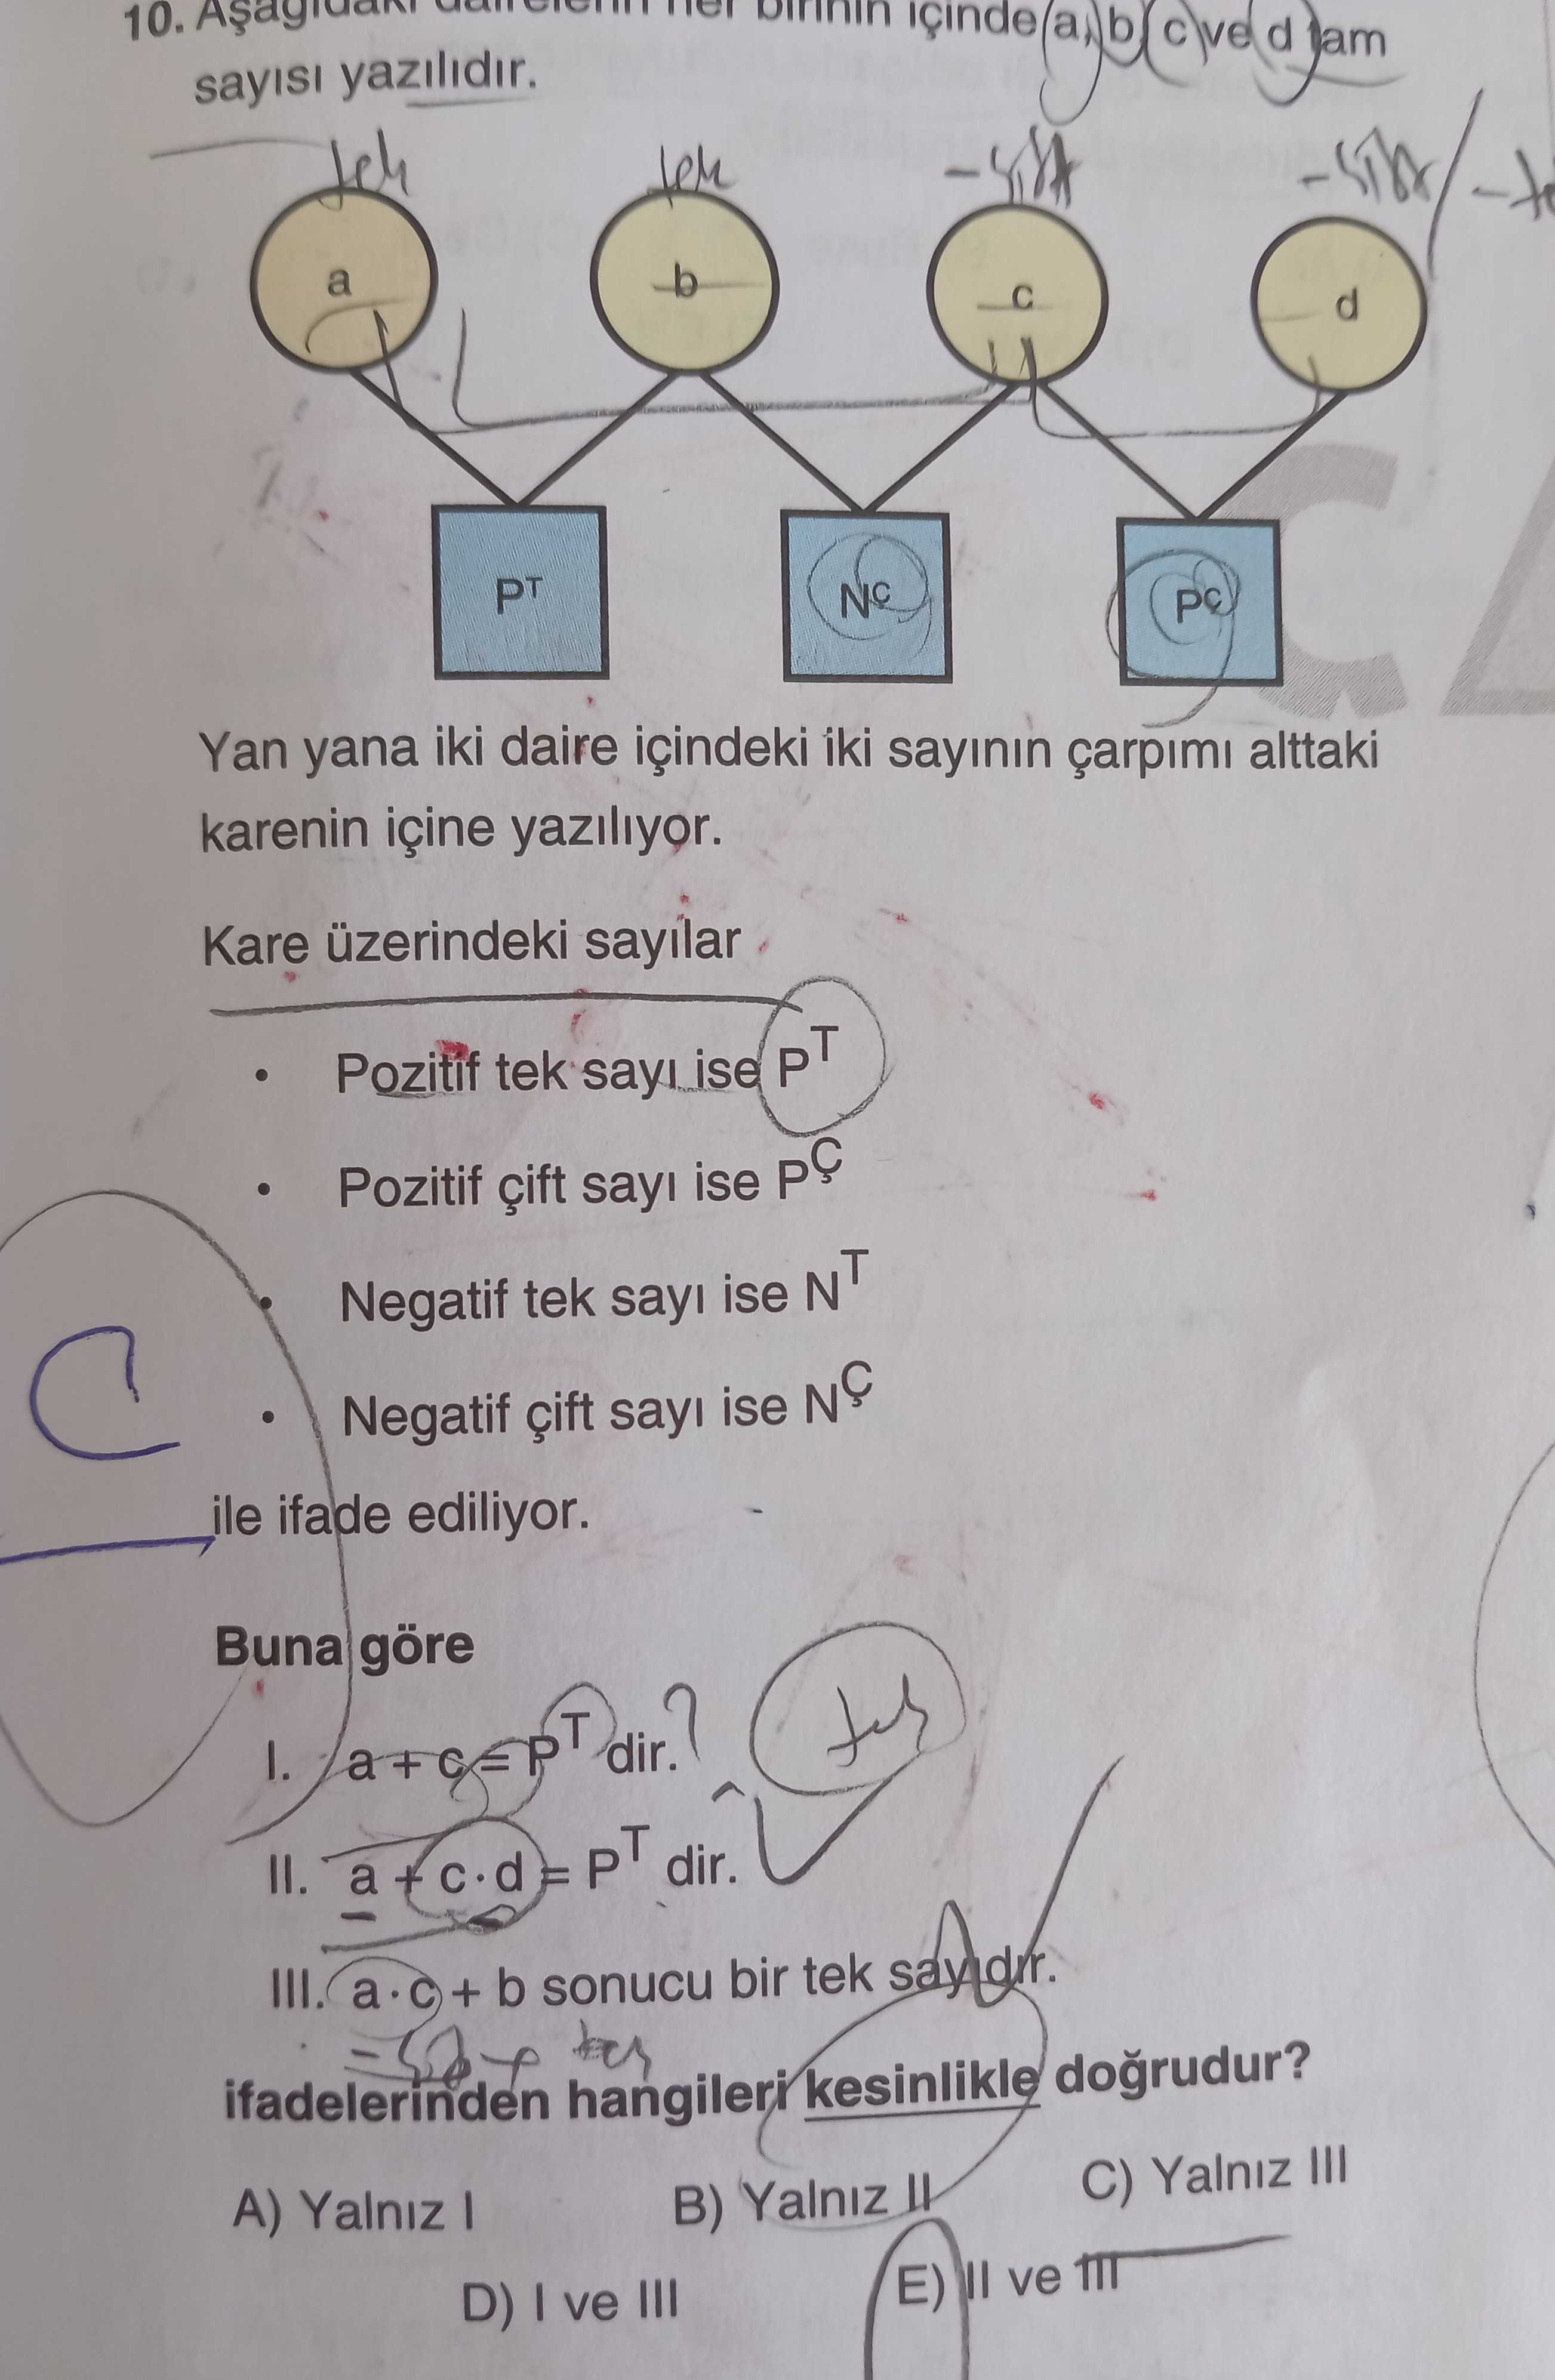 10. Aşağıdaki dairelerin her birinin içinde a, b, c ve d tam
sayısı yazılıdır.
tek tek -çift -çift / -te
a b c d
Pᵀ N^Ç P^Ç
Yan yana iki daire içindeki iki sayının çarpımı alttaki
karenin içine yazılıyor.
Kare üzerindeki sayılar
• Pozitif tek sayı ise Pᵀ
• Pozitif çift sayı ise P^Ç
• Negatif tek sayı ise Nᵀ
• Negatif çift sayı ise N^Ç
C
ile ifade ediliyor.
Buna göre
I. a + c = Pᵀ dir. ? tek
II. a + c·d = Pᵀ dir.
III. a·c + b sonucu bir tek sayıdır.
ifadelerinden hangileri kesinlikle doğrudur?
A) Yalnız I B) Yalnız II C) Yalnız III
D) I ve III E) II ve III